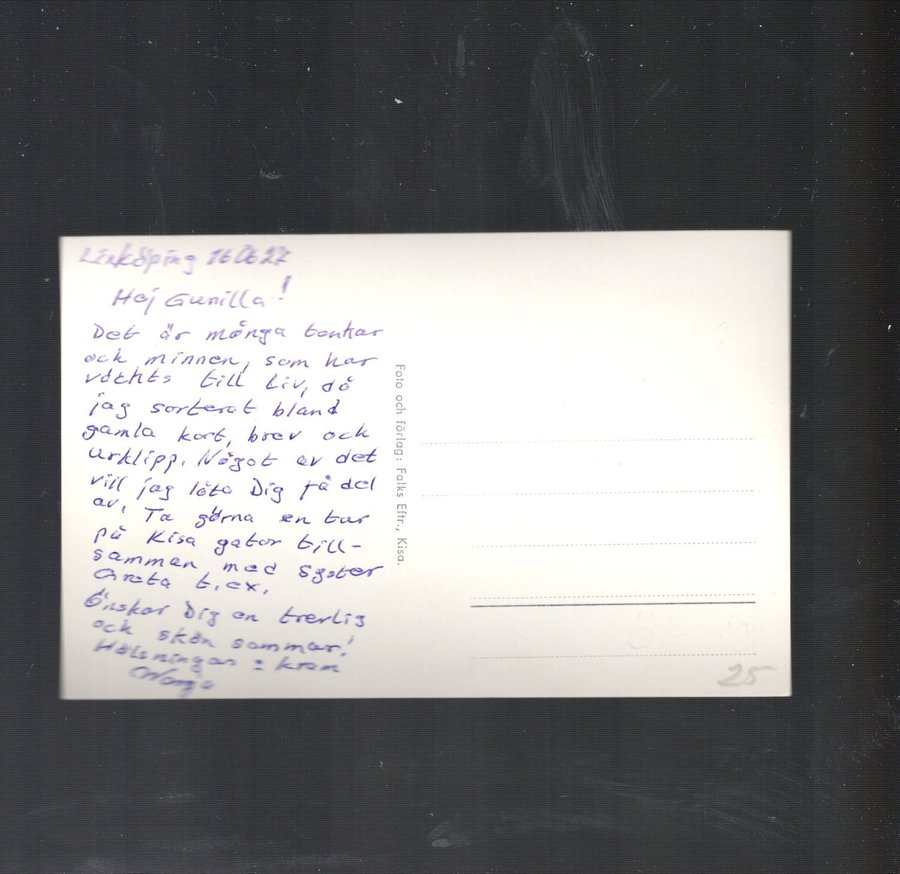 Linköping 160627
Hej Gunilla!
Det är många tankar
och minnen, som har
väckts till Liv, då
jag sorterat bland
gamla kort, brev och
urklipp. Något av det
vill jag låta Dig få del
av. Ta gärna en tur
på Kisa gator till-
samman med Syster
Greta t.ex.
Önskar Dig en trevlig
och skön sommar!
Hälsningar & kram
Foto och förlag: Falks Eftr., Kisa.
25